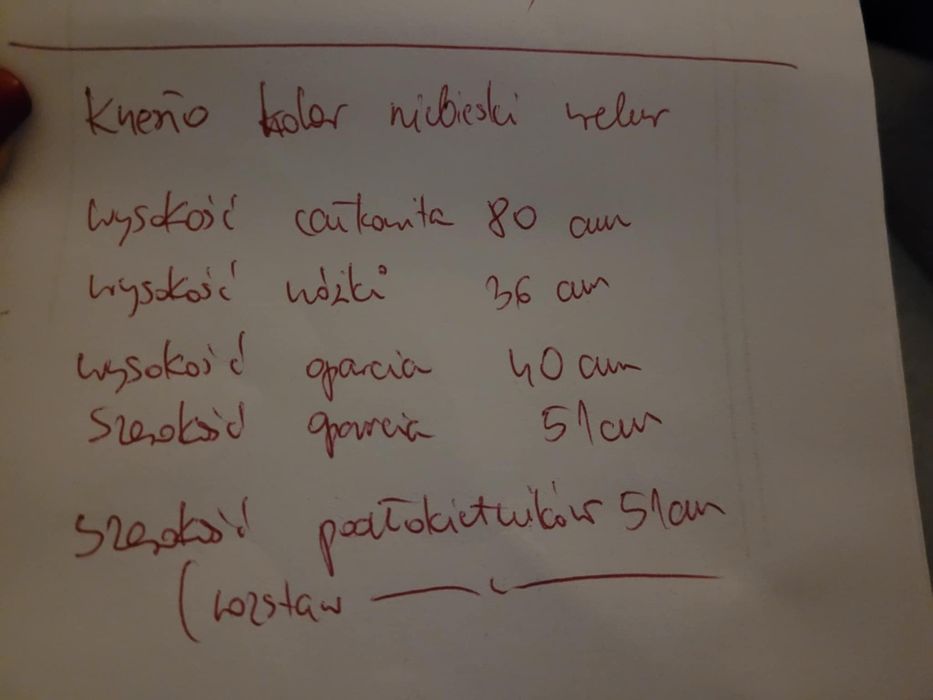 Krzesło kolor niebieski welur
wysokość całkowita 80 cm
wysokość nóżki 36 cm
wysokość oparcia 40 cm
Szerokość oparcia 51 cm
Szerokość podłokietników 51 cm
(rozstaw